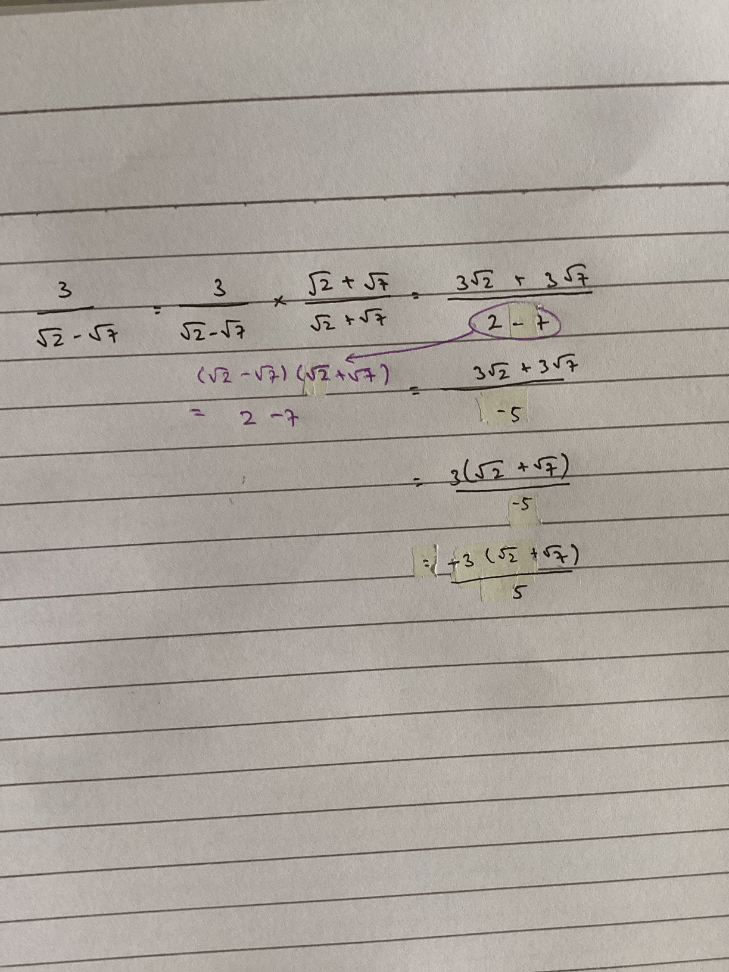 3/(√2 - √7) = 3/(√2 - √7) × (√2 + √7)/(√2 + √7) = (3√2 + 3√7)/(2 - 7)
(√2 - √7)(√2 + √7)
= 2 - 7
= (3√2 + 3√7)/-5
= 3(√2 + √7)/-5
= -3(√2 + √7)/5